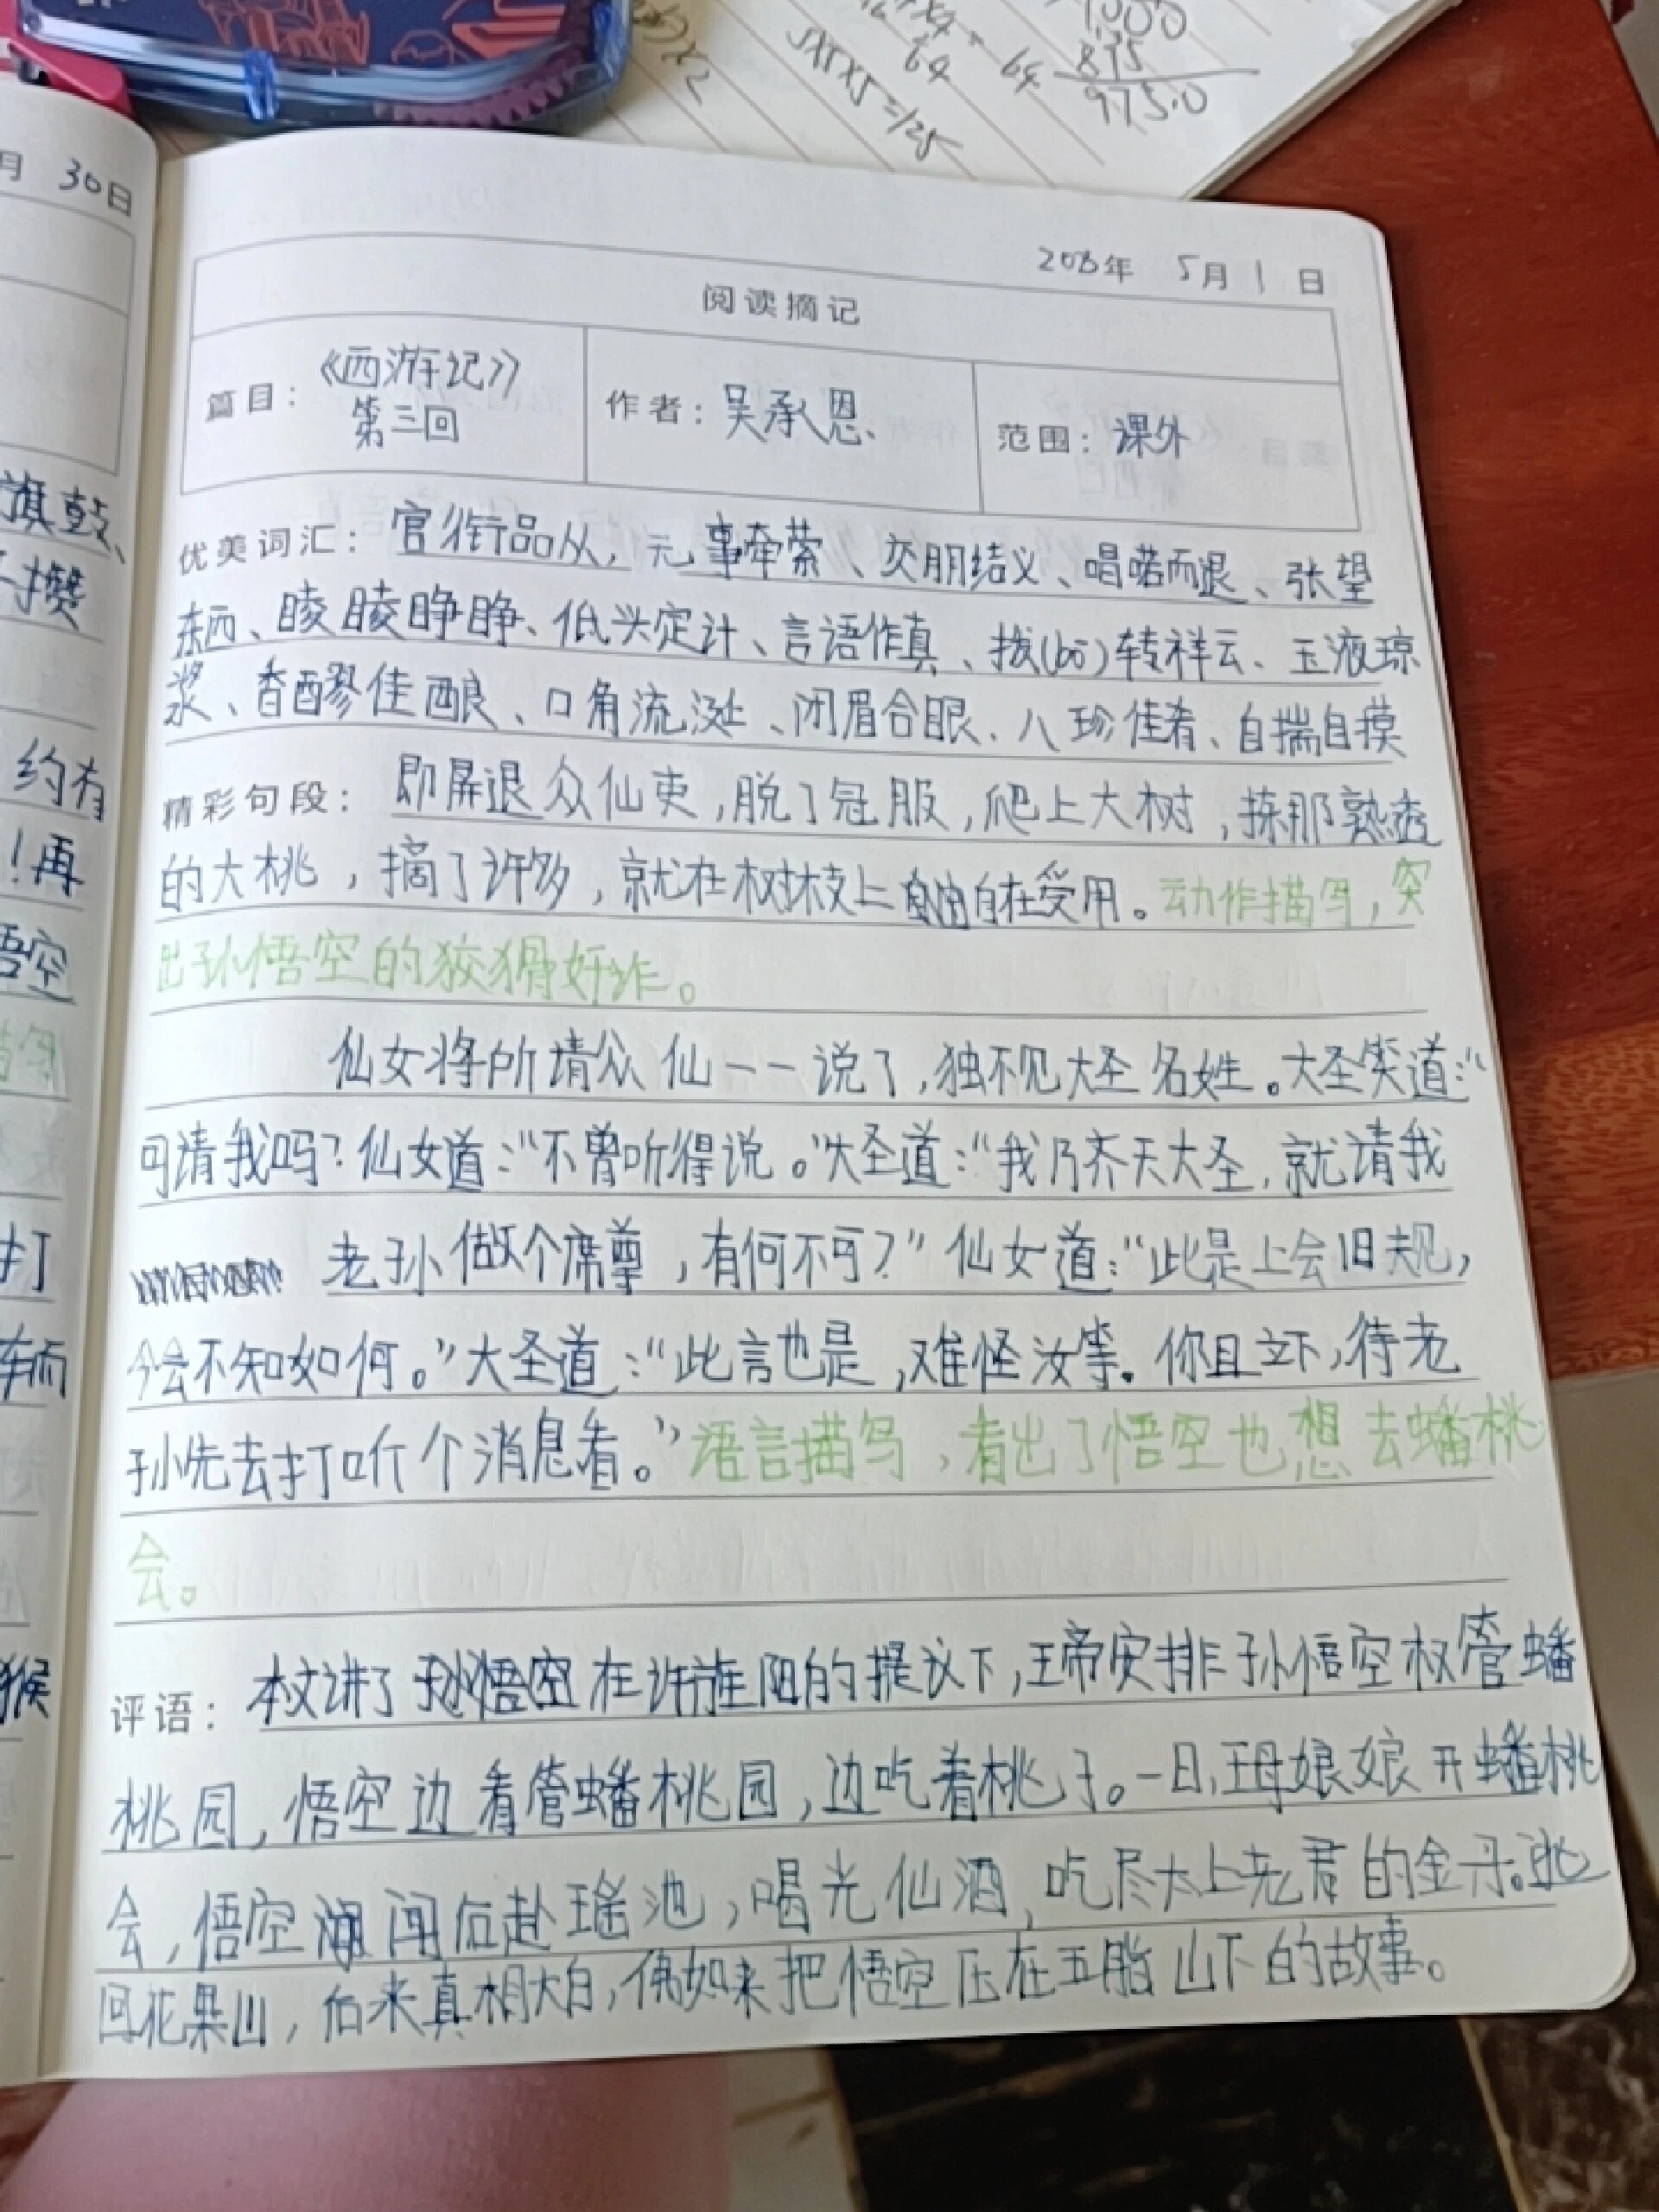 月 30日
旗鼓、
手攒
约有
！再
悟空
打
猴
5X5X5=125
64
64
1000
875
975.0
年 5月1日
阅读摘记
篇目：《西游记》
第三回
作者：吴承恩、
范围：课外
优美词汇：官衔品从，无事牵萦、交朋结义、唱喏而退、张望
东西、睖睖睁睁、低头定计、言语作真、拨(bō)转祥云、玉液琼
浆、香醪佳酿、口角流涎、闭眉合眼、八珍佳肴、自揣自摸
精彩句段：即屏退众仙吏，脱了冠服，爬上大树，拣那熟透
的大桃，摘了许多，就在树枝上自由自在受用。动作描写，突
出孙悟空的狡猾奸诈。
仙女将所请众仙一一说了，独不见大圣名姓。大圣笑道：“
可请我吗？仙女道：“不曾听得说。”大圣道：“我乃齐天大圣，就请我
老孙做个席尊，有何不可？”仙女道：“此是上会旧规，
今会不知如何。”大圣道：“此言也是，难怪汝等。你且立下，待老
孙先去打听个消息看。”语言描写，看出了悟空也想去蟠桃
会。
评语：本文讲了孙悟空在许旌阳的提议下，王帝安排孙悟空权管蟠
桃园，悟空边看管蟠桃园，边吃着桃子。一日，王母娘娘开蟠桃
会，悟空闯后赴瑶池，喝光仙酒，吃尽太上老君的金丹。逃
回花果山，后来真相大白，佛如来把悟空压在五脂山下的故事。